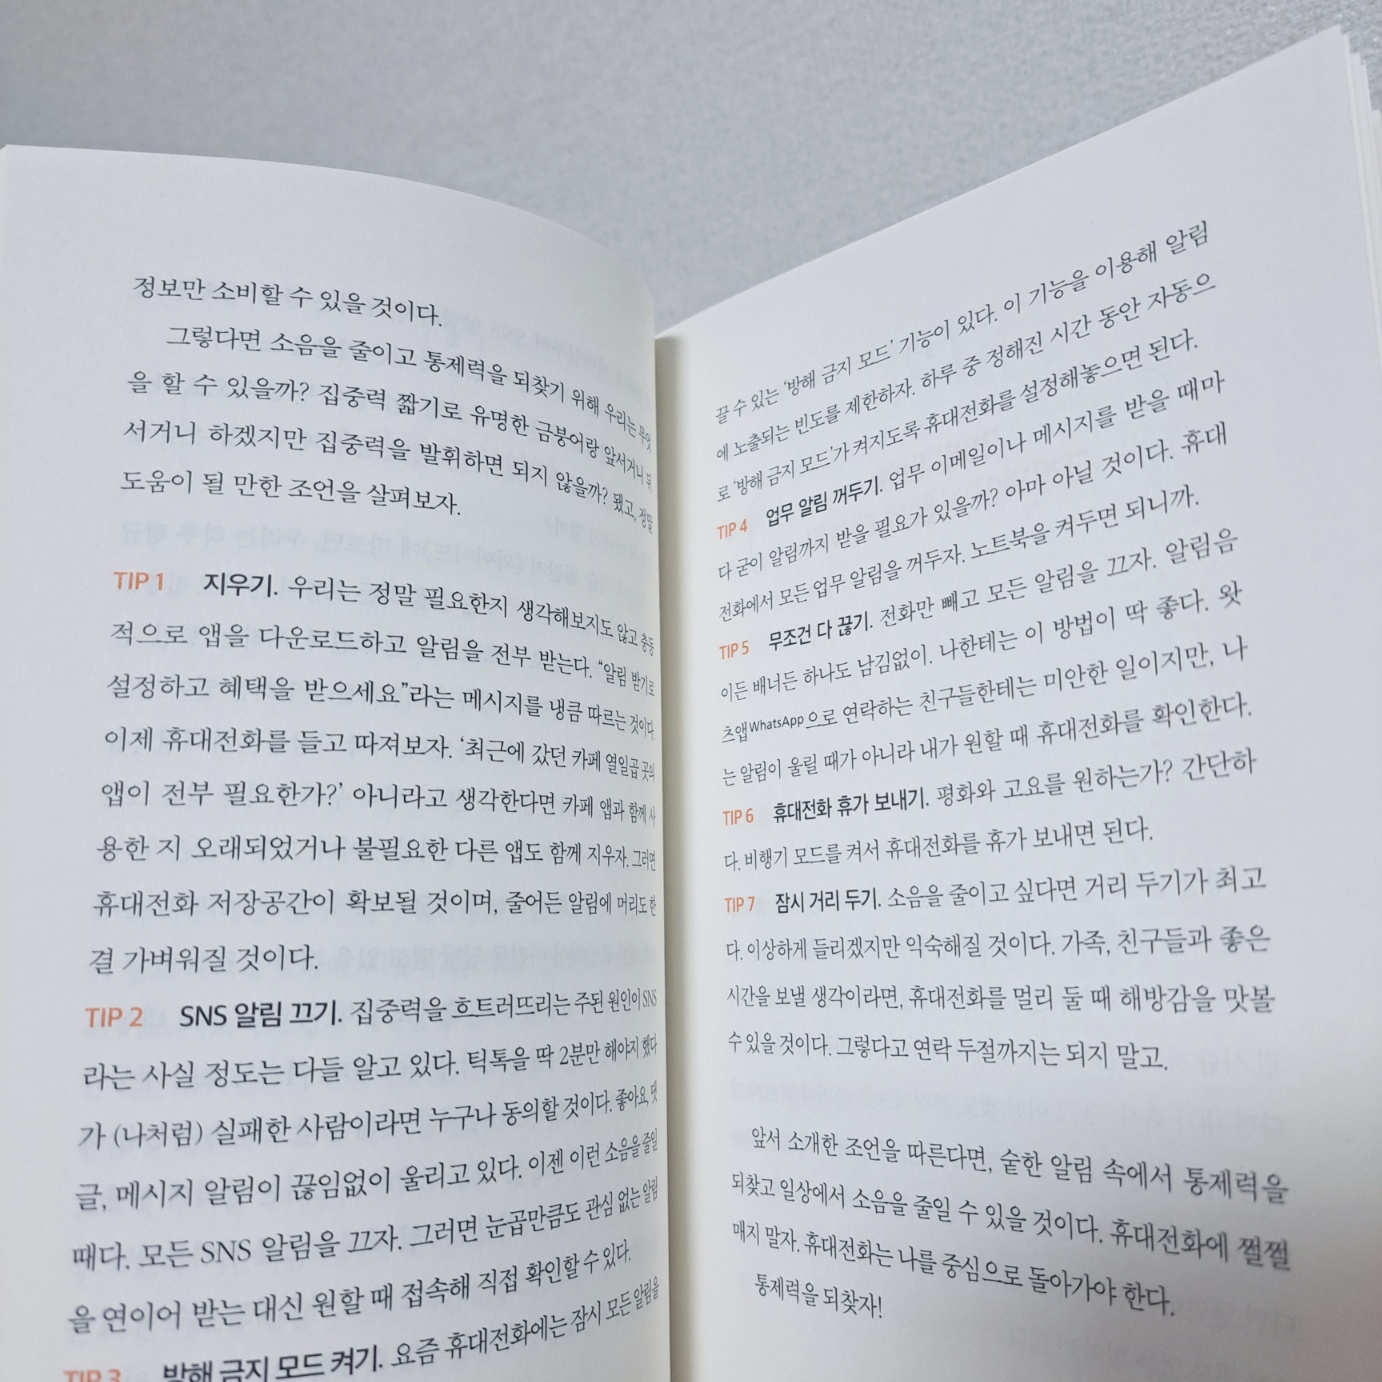 정보만 소비할 수 있을 것이다.
그렇다면 소음을 줄이고 통제력을 되찾기 위해 우리는 무엇
을 할 수 있을까? 집중력 짧기로 유명한 금붕어랑 앞서거니 뒤
서거니 하겠지만 집중력을 발휘하면 되지 않을까? 됐고, 정말
도움이 될 만한 조언을 살펴보자.
TIP 1 지우기. 우리는 정말 필요한지 생각해보지도 않고 충동
적으로 앱을 다운로드하고 알림을 전부 받는다. “알림 받기로
설정하고 혜택을 받으세요”라는 메시지를 냉큼 따르는 것이다.
이제 휴대전화를 들고 따져보자. ‘최근에 갔던 카페 열일곱 곳의
앱이 전부 필요한가?’ 아니라고 생각한다면 카페 앱과 함께 사
용한 지 오래되었거나 불필요한 다른 앱도 함께 지우자. 그러면
휴대전화 저장공간이 확보될 것이며, 줄어든 알림에 머리도 한
결 가벼워질 것이다.
TIP 2 SNS 알림 끄기. 집중력을 흐트러뜨리는 주된 원인이 SNS
라는 사실 정도는 다들 알고 있다. 틱톡을 딱 2분만 해야지 했다
가 (나처럼) 실패한 사람이라면 누구나 동의할 것이다. 좋아요, 댓
글, 메시지 알림이 끊임없이 울리고 있다. 이젠 이런 소음을 줄일
때다. 모든 SNS 알림을 끄자. 그러면 눈곱만큼도 관심 없는 알림
을 연이어 받는 대신 원할 때 접속해 직접 확인할 수 있다.
TIP 3 방해 금지 모드 켜기. 요즘 휴대전화에는 잠시 모든 알림을
끌 수 있는 ‘방해 금지 모드’ 기능이 있다. 이 기능을 이용해 알림
에 노출되는 빈도를 제한하자. 하루 중 정해진 시간 동안 자동으
로 ‘방해 금지 모드’가 켜지도록 휴대전화를 설정해놓으면 된다.
TIP 4 업무 알림 꺼두기. 업무 이메일이나 메시지를 받을 때마
다 굳이 알림까지 받을 필요가 있을까? 아마 아닐 것이다. 휴대
전화에서 모든 업무 알림을 꺼두자. 노트북을 켜두면 되니까.
TIP 5 무조건 다 끊기. 전화만 빼고 모든 알림을 끄자. 알림음
이든 배너든 하나도 남김없이. 나한테는 이 방법이 딱 좋다. 왓
츠앱WhatsApp으로 연락하는 친구들한테는 미안한 일이지만, 나
는 알림이 울릴 때가 아니라 내가 원할 때 휴대전화를 확인한다.
TIP 6 휴대전화 휴가 보내기. 평화와 고요를 원하는가? 간단하
다. 비행기 모드를 켜서 휴대전화를 휴가 보내면 된다.
TIP 7 잠시 거리 두기. 소음을 줄이고 싶다면 거리 두기가 최고
다. 이상하게 들리겠지만 익숙해질 것이다. 가족, 친구들과 좋은
시간을 보낼 생각이라면, 휴대전화를 멀리 둘 때 해방감을 맛볼
수 있을 것이다. 그렇다고 연락 두절까지는 되지 말고.
앞서 소개한 조언을 따른다면, 숱한 알림 속에서 통제력을
되찾고 일상에서 소음을 줄일 수 있을 것이다. 휴대전화에 쩔쩔
매지 말자. 휴대전화는 나를 중심으로 돌아가야 한다.
통제력을 되찾자!